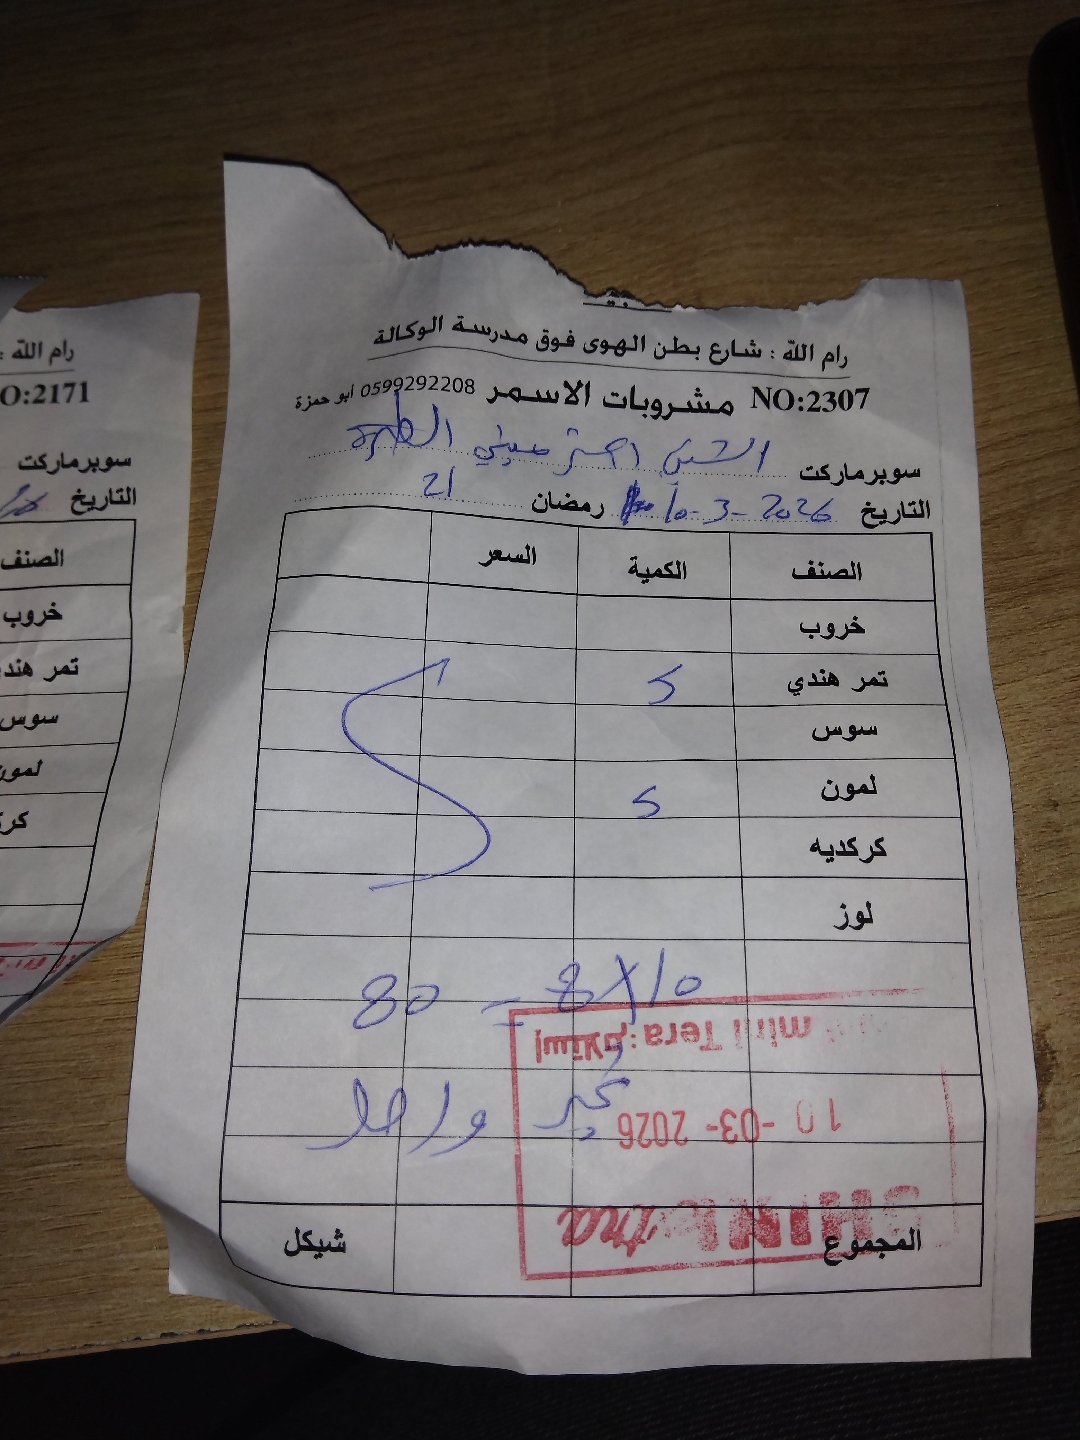 رام الله : شارع بطن الهوى فوق مدرسة الوكالة
NO:2307 مشروبات الاسمر 0599292208 ابو حمزة
سوبرماركت الشني اكسترا ميني الطيرة
التاريخ 10-3-2026 رمضان 21
الصنف الكمية السعر
خروب
تمر هندي 5
سوس
لمون 5
كركديه
لوز
10 X 8 = 80
واحد
إستلام: mini Tera
10 -03- 2026
SHINI Extra
المجموع شيكل
رام الله :
NO:2171
سوبرماركت
التاريخ
الصنف
خروب
تمر هندي
سوس
لمون